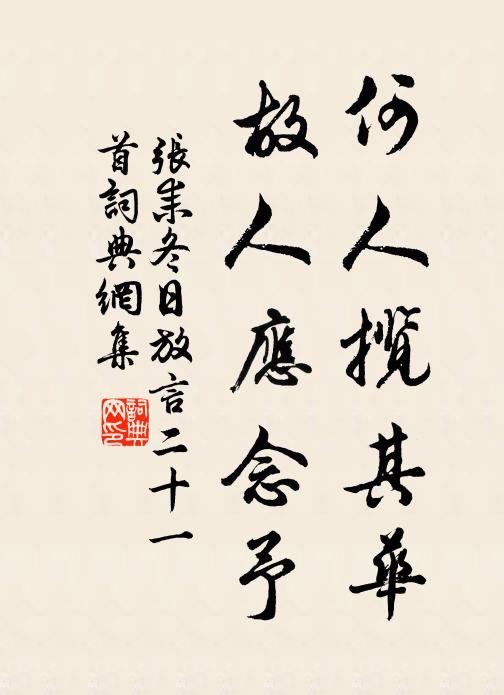 何人攬其華
故人應念予
張耒冬日放言二十一
首詞典網集
詞典
网印